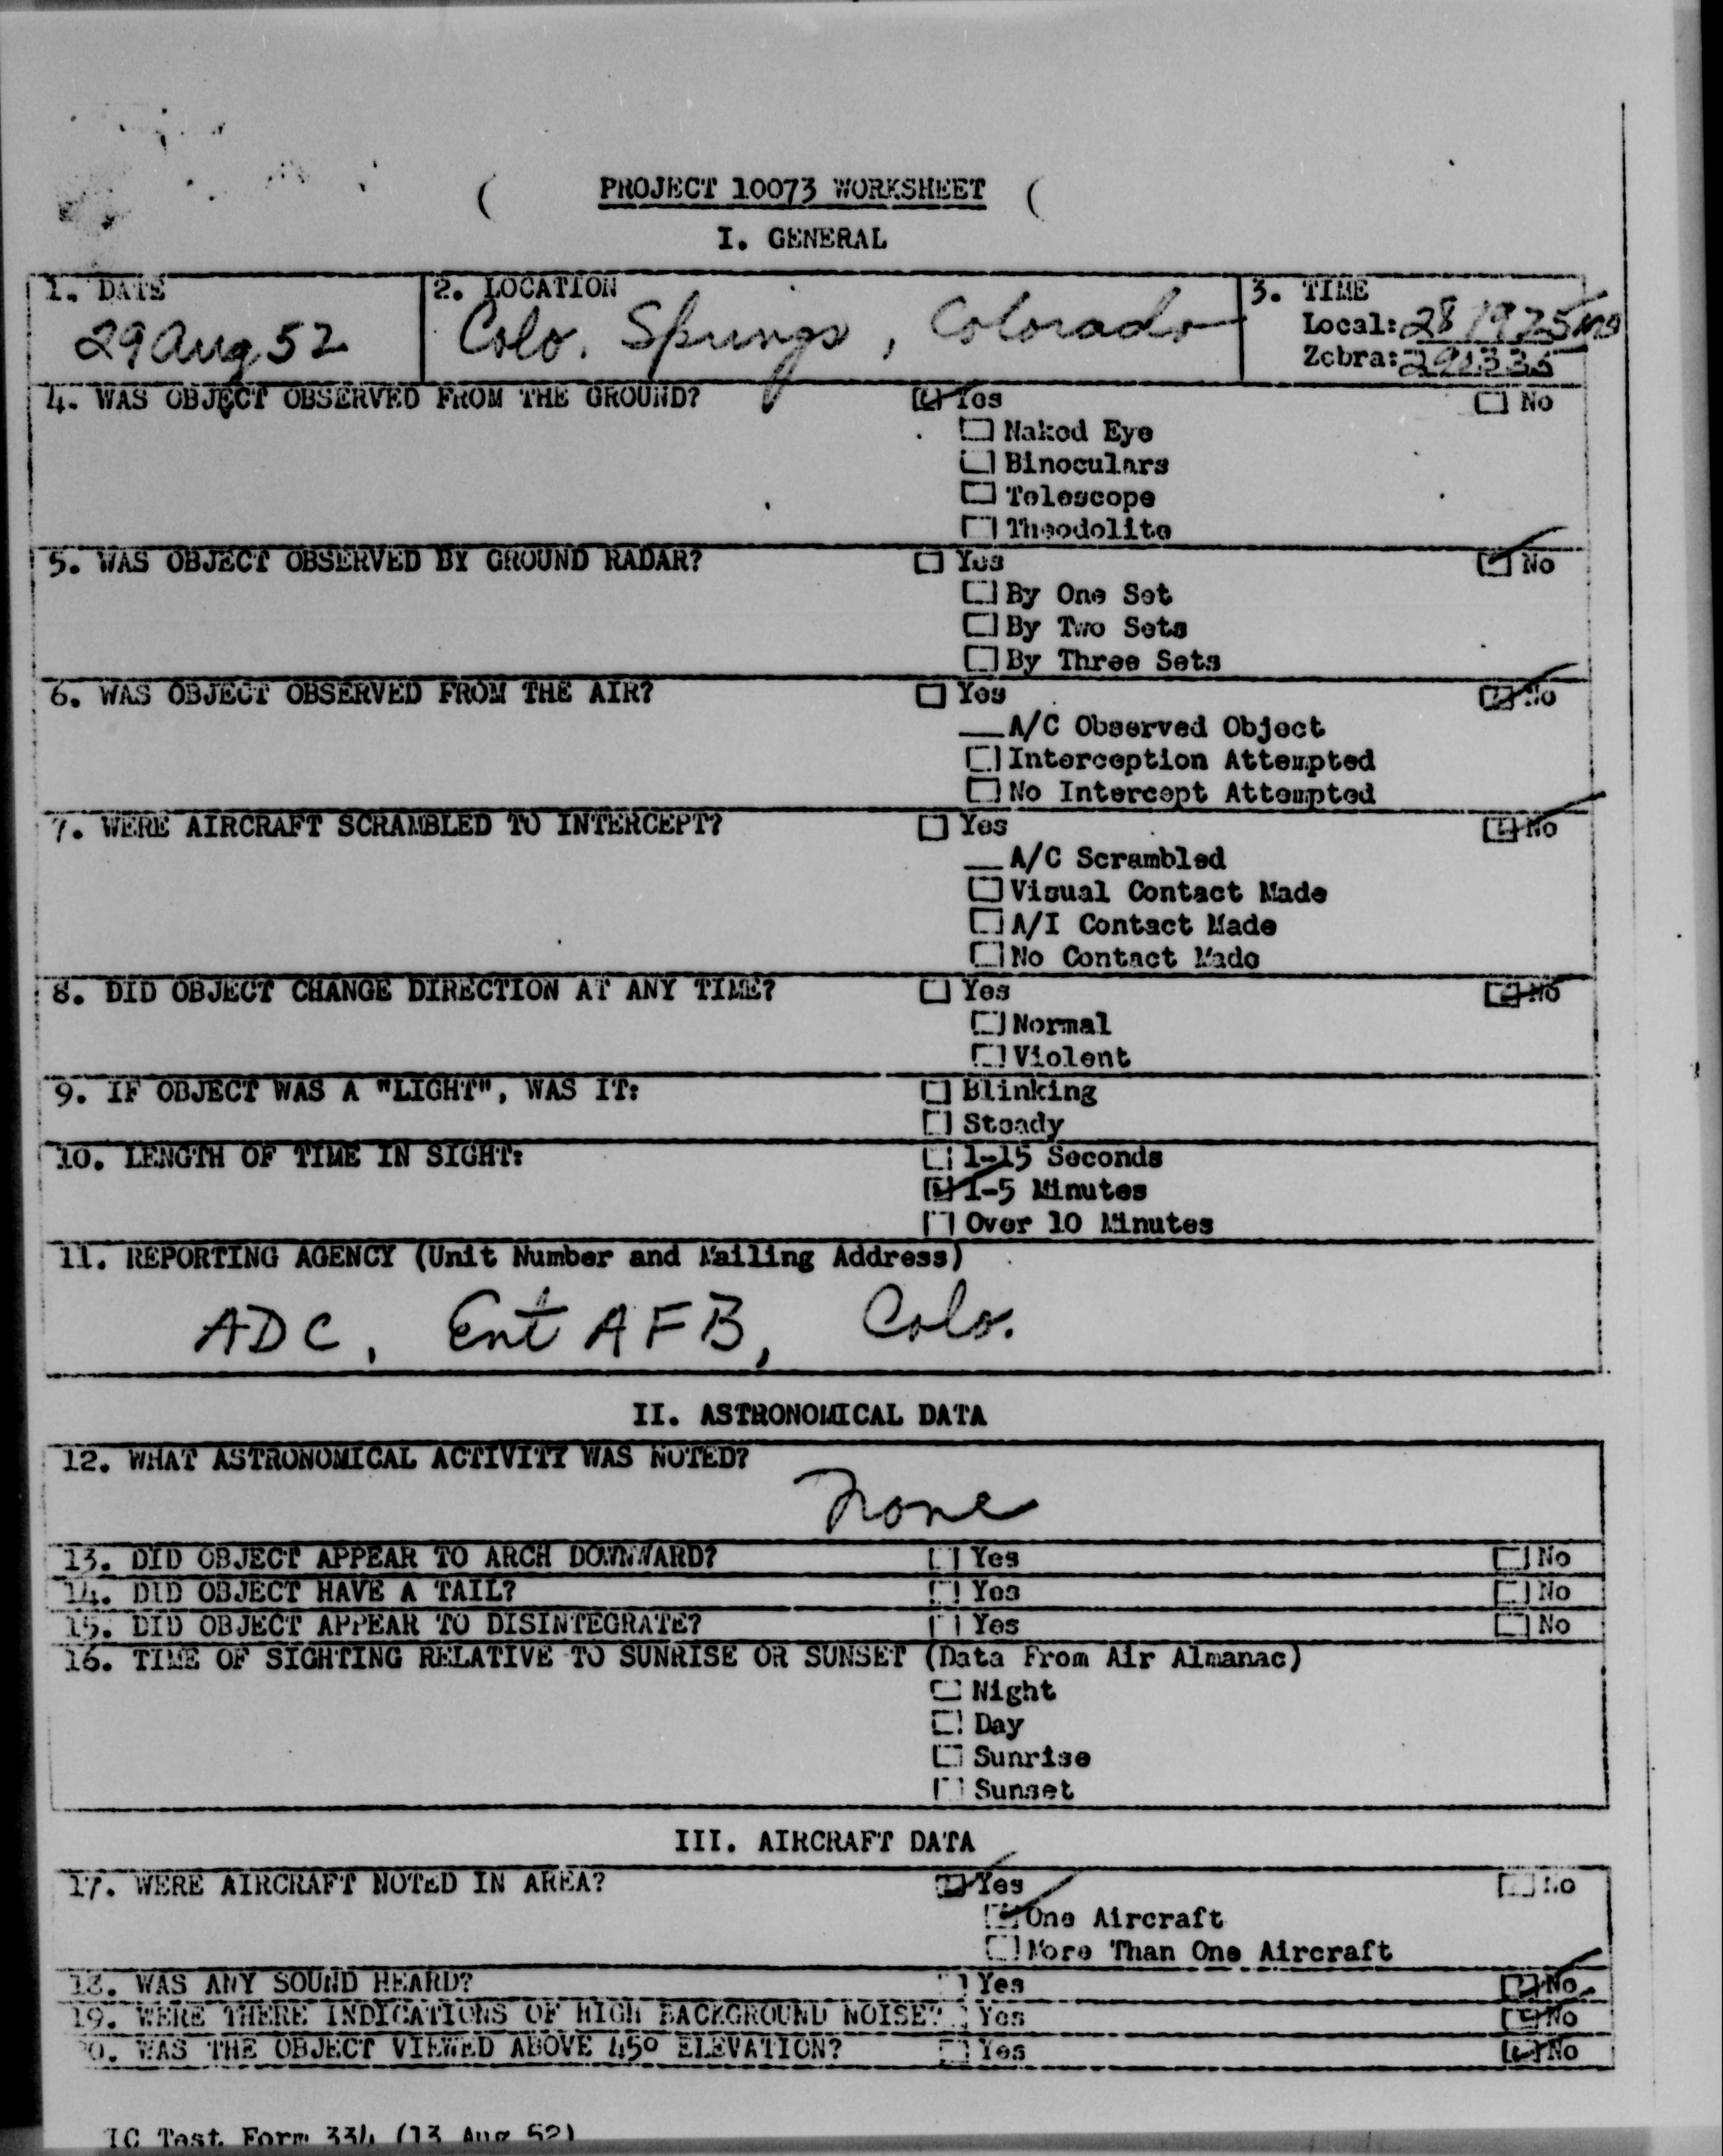 PROJECT 10073 WORKSHEET
I. GENERAL
1. DATE
29 Aug 52
2. LOCATION
Colo. Springs, Colorado
3. TIME
Local: 28 1925
Zebra:
4. WAS OBJECT OBSERVED FROM THE GROUND? Yes No
Naked Eye
Binoculars
Telescope
Theodolite
5. WAS OBJECT OBSERVED BY GROUND RADAR? Yes No
By One Set
By Two Sets
By Three Sets
6. WAS OBJECT OBSERVED FROM THE AIR? Yes No
A/C Observed Object
Interception Attempted
No Intercept Attempted
7. WERE AIRCRAFT SCRAMBLED TO INTERCEPT? Yes No
A/C Scrambled
Visual Contact Made
A/I Contact Made
No Contact Made
8. DID OBJECT CHANGE DIRECTION AT ANY TIME? Yes No
Normal
Violent
9. IF OBJECT WAS A "LIGHT", WAS IT: Blinking
Steady
10. LENGTH OF TIME IN SIGHT: 1-15 Seconds
1-5 Minutes
Over 10 Minutes
11. REPORTING AGENCY (Unit Number and Mailing Address)
ADC, Ent AFB, Colo.
II. ASTRONOMICAL DATA
12. WHAT ASTRONOMICAL ACTIVITY WAS NOTED?
None
13. DID OBJECT APPEAR TO ARCH DOWNWARD? Yes No
14. DID OBJECT HAVE A TAIL? Yes No
15. DID OBJECT APPEAR TO DISINTEGRATE? Yes No
16. TIME OF SIGHTING RELATIVE TO SUNRISE OR SUNSET (Data From Air Almanac)
Night
Day
Sunrise
Sunset
III. AIRCRAFT DATA
17. WERE AIRCRAFT NOTED IN AREA? Yes No
One Aircraft
More Than One Aircraft
18. WAS ANY SOUND HEARD? Yes No
19. WERE THERE INDICATIONS OF HIGH BACKGROUND NOISE? Yes No
20. WAS THE OBJECT VIEWED ABOVE 45° ELEVATION? Yes No
IC Test Form 334 (13 Aug 52)